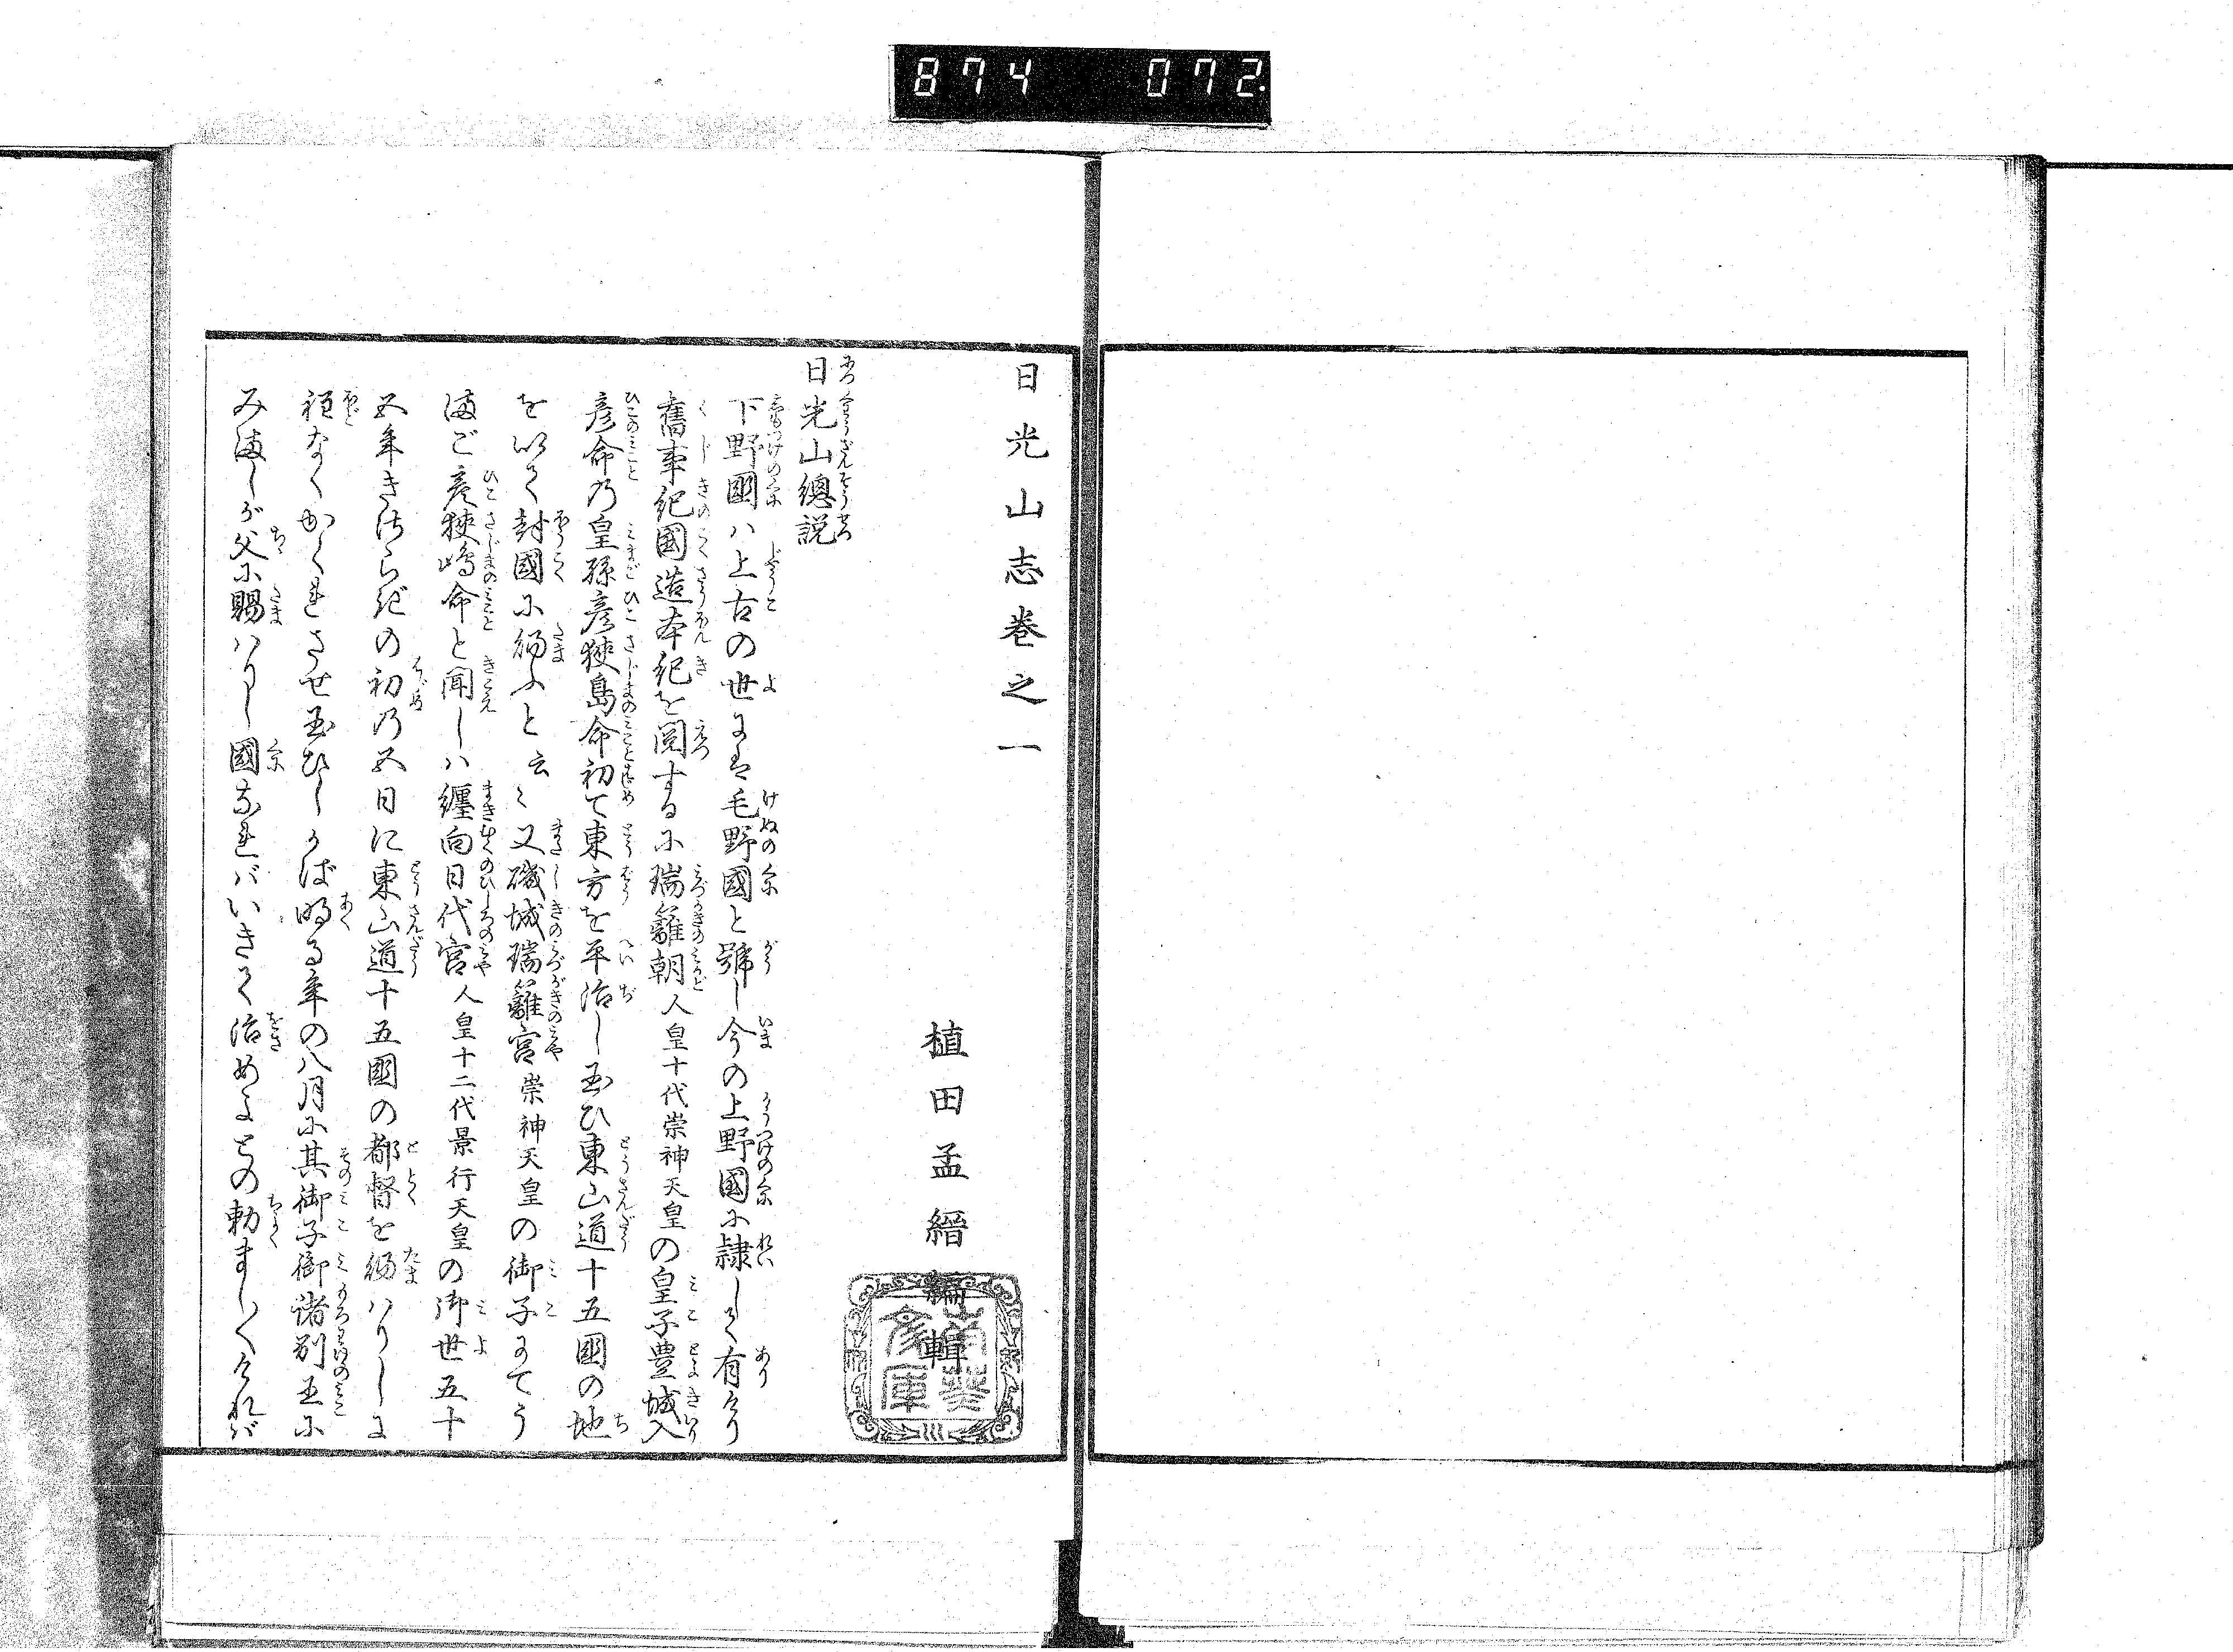 874 072
日光山志巻之一
植田孟縉編輯
日光山總説
下野國ハ上古の世には毛野國と號し今の上野國に隷して有けり
舊事紀國造本紀を閲するに瑞籬朝人皇十代崇神天皇の皇子豊城入
彦命乃皇孫彦狹島命初て東方を平治し玉ひ東山道十五國の地
を以て封國に給ふと云々又磯城瑞籬宮崇神天皇の御子にてう
まご彦狹嶋命と聞しハ纏向日代宮人皇十二代景行天皇の御世五十
五年きさらぎの初乃五日に東山道十五國の都督を給ハりしに
程なくかくれさせ玉ひしかば明る年の八月に其御子御諸別王に
みましが父に賜ハりし國なればいきて治めよとの勅ましくければ